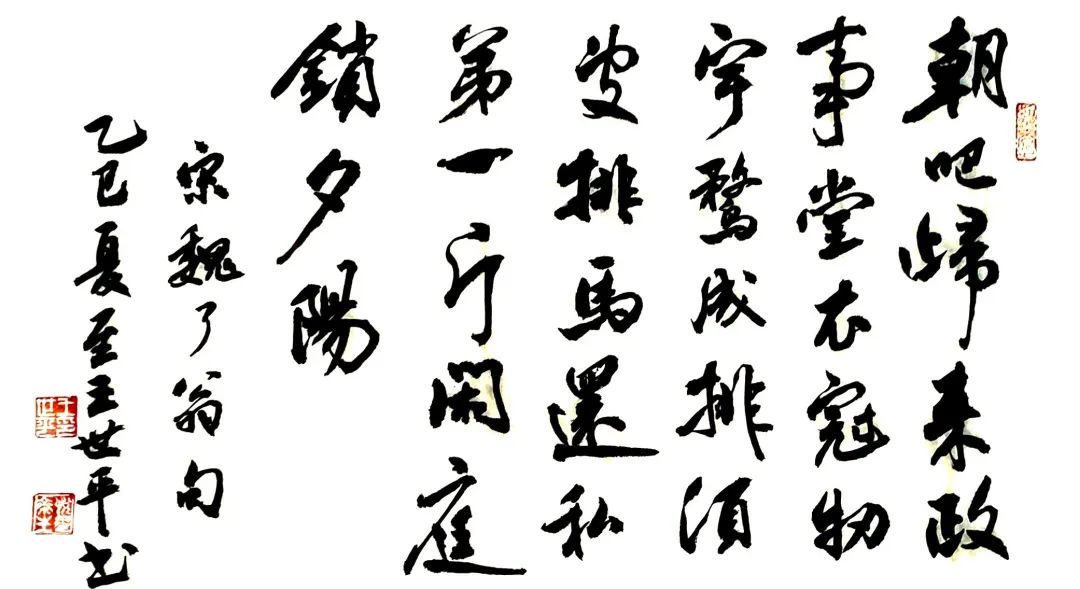 朝吧歸来政
事堂衣冠物
宇鶩成排須
臾排馬還私
第一片閑庭
鎖夕陽
宋魏了翁句
乙巳夏至王世平书